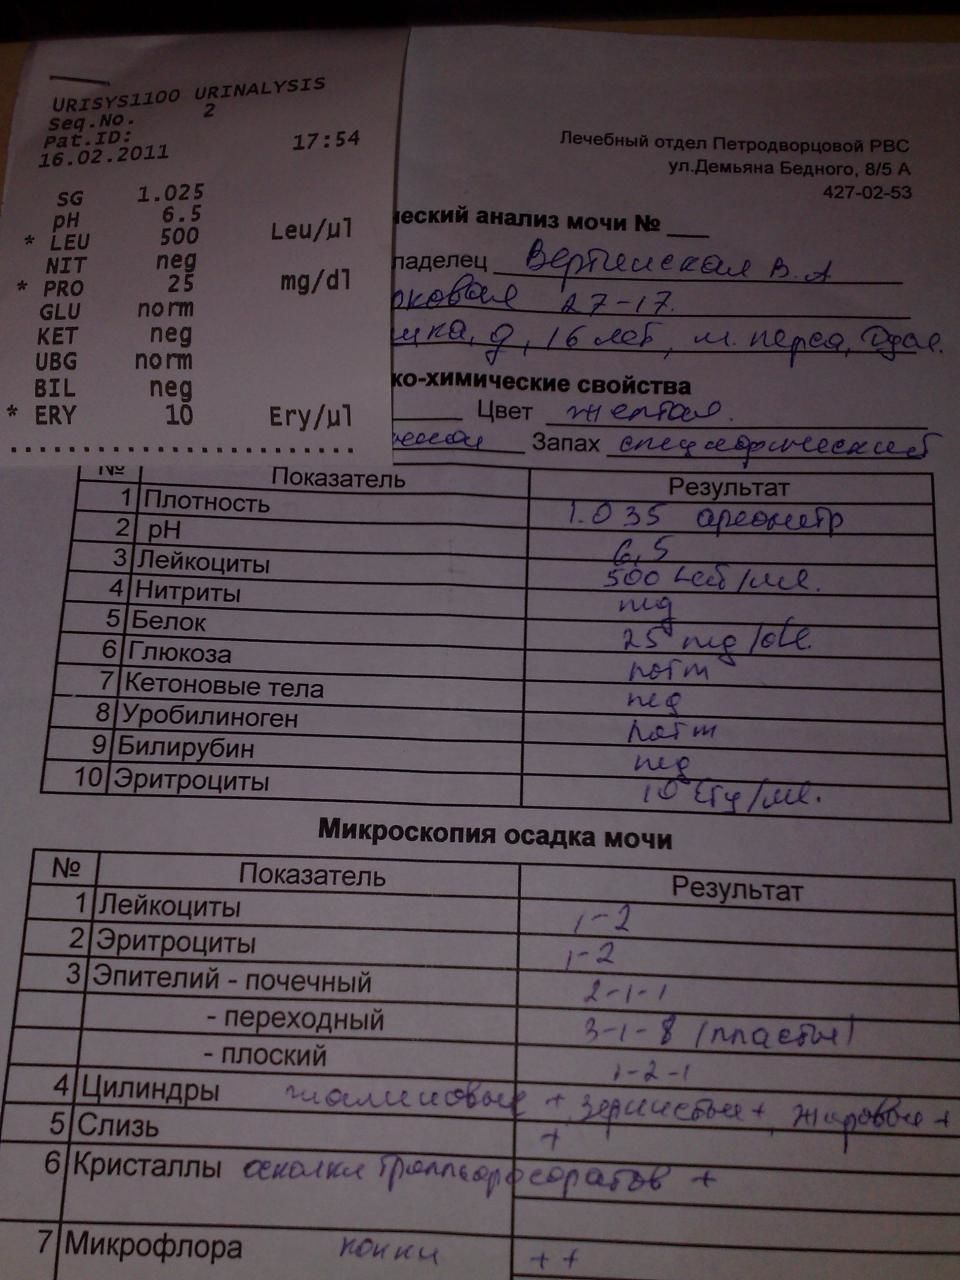 URISYS1100 URINALYSIS
Seq.No. 2
Pat.ID:
16.02.2011 17:54
SG 1.025
pH 6.5
* LEU 500 Leu/µl
NIT neg
* PRO 25 mg/dl
GLU norm
KET neg
UBG norm
BIL neg
* ERY 10 Ery/µl
Лечебный отдел Петродворцовой РВС
ул.Демьяна Бедного, 8/5 А
427-02-53
ческий анализ мочи № ___
ладелец Вертинская В.А
рковая 27-17.
шка, д, 16 лет, м. перса,
ко-химические свойства
Цвет желтая.
Запах специфический
№ Показатель Результат
1 Плотность 1.035 ареометр
2 pH 6,5
3 Лейкоциты 500 Leu/µl.
4 Нитриты neg
5 Белок 25 mg/dl.
6 Глюкоза norm
7 Кетоновые тела neg
8 Уробилиноген norm
9 Билирубин neg
10 Эритроциты 10 Ery/µl.
Микроскопия осадка мочи
№ Показатель Результат
1 Лейкоциты 1-2
2 Эритроциты 1-2
3 Эпителий - почечный 2-1-1
- переходный 3-1-8 (пласты)
- плоский 1-2-1
4 Цилиндры гиалиновые +, зернистые +, жировые +
5 Слизь +
6 Кристаллы осколки трипельфосфатов +
7 Микрофлора кокки ++